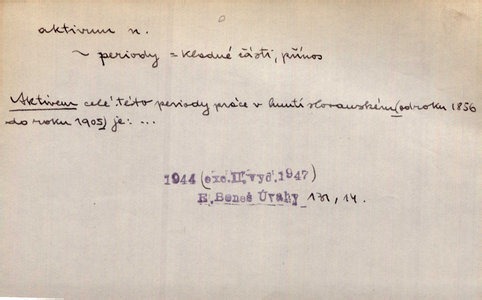 aktivum n.
~ periody = kladné části, přínos
Aktivem celé této periody práce v hnutí slovanském (od roku 1856
do roku 1905) je: ...
1944 (exc. II. vyd. 1947)
E. Beneš Úvahy 171, 14.